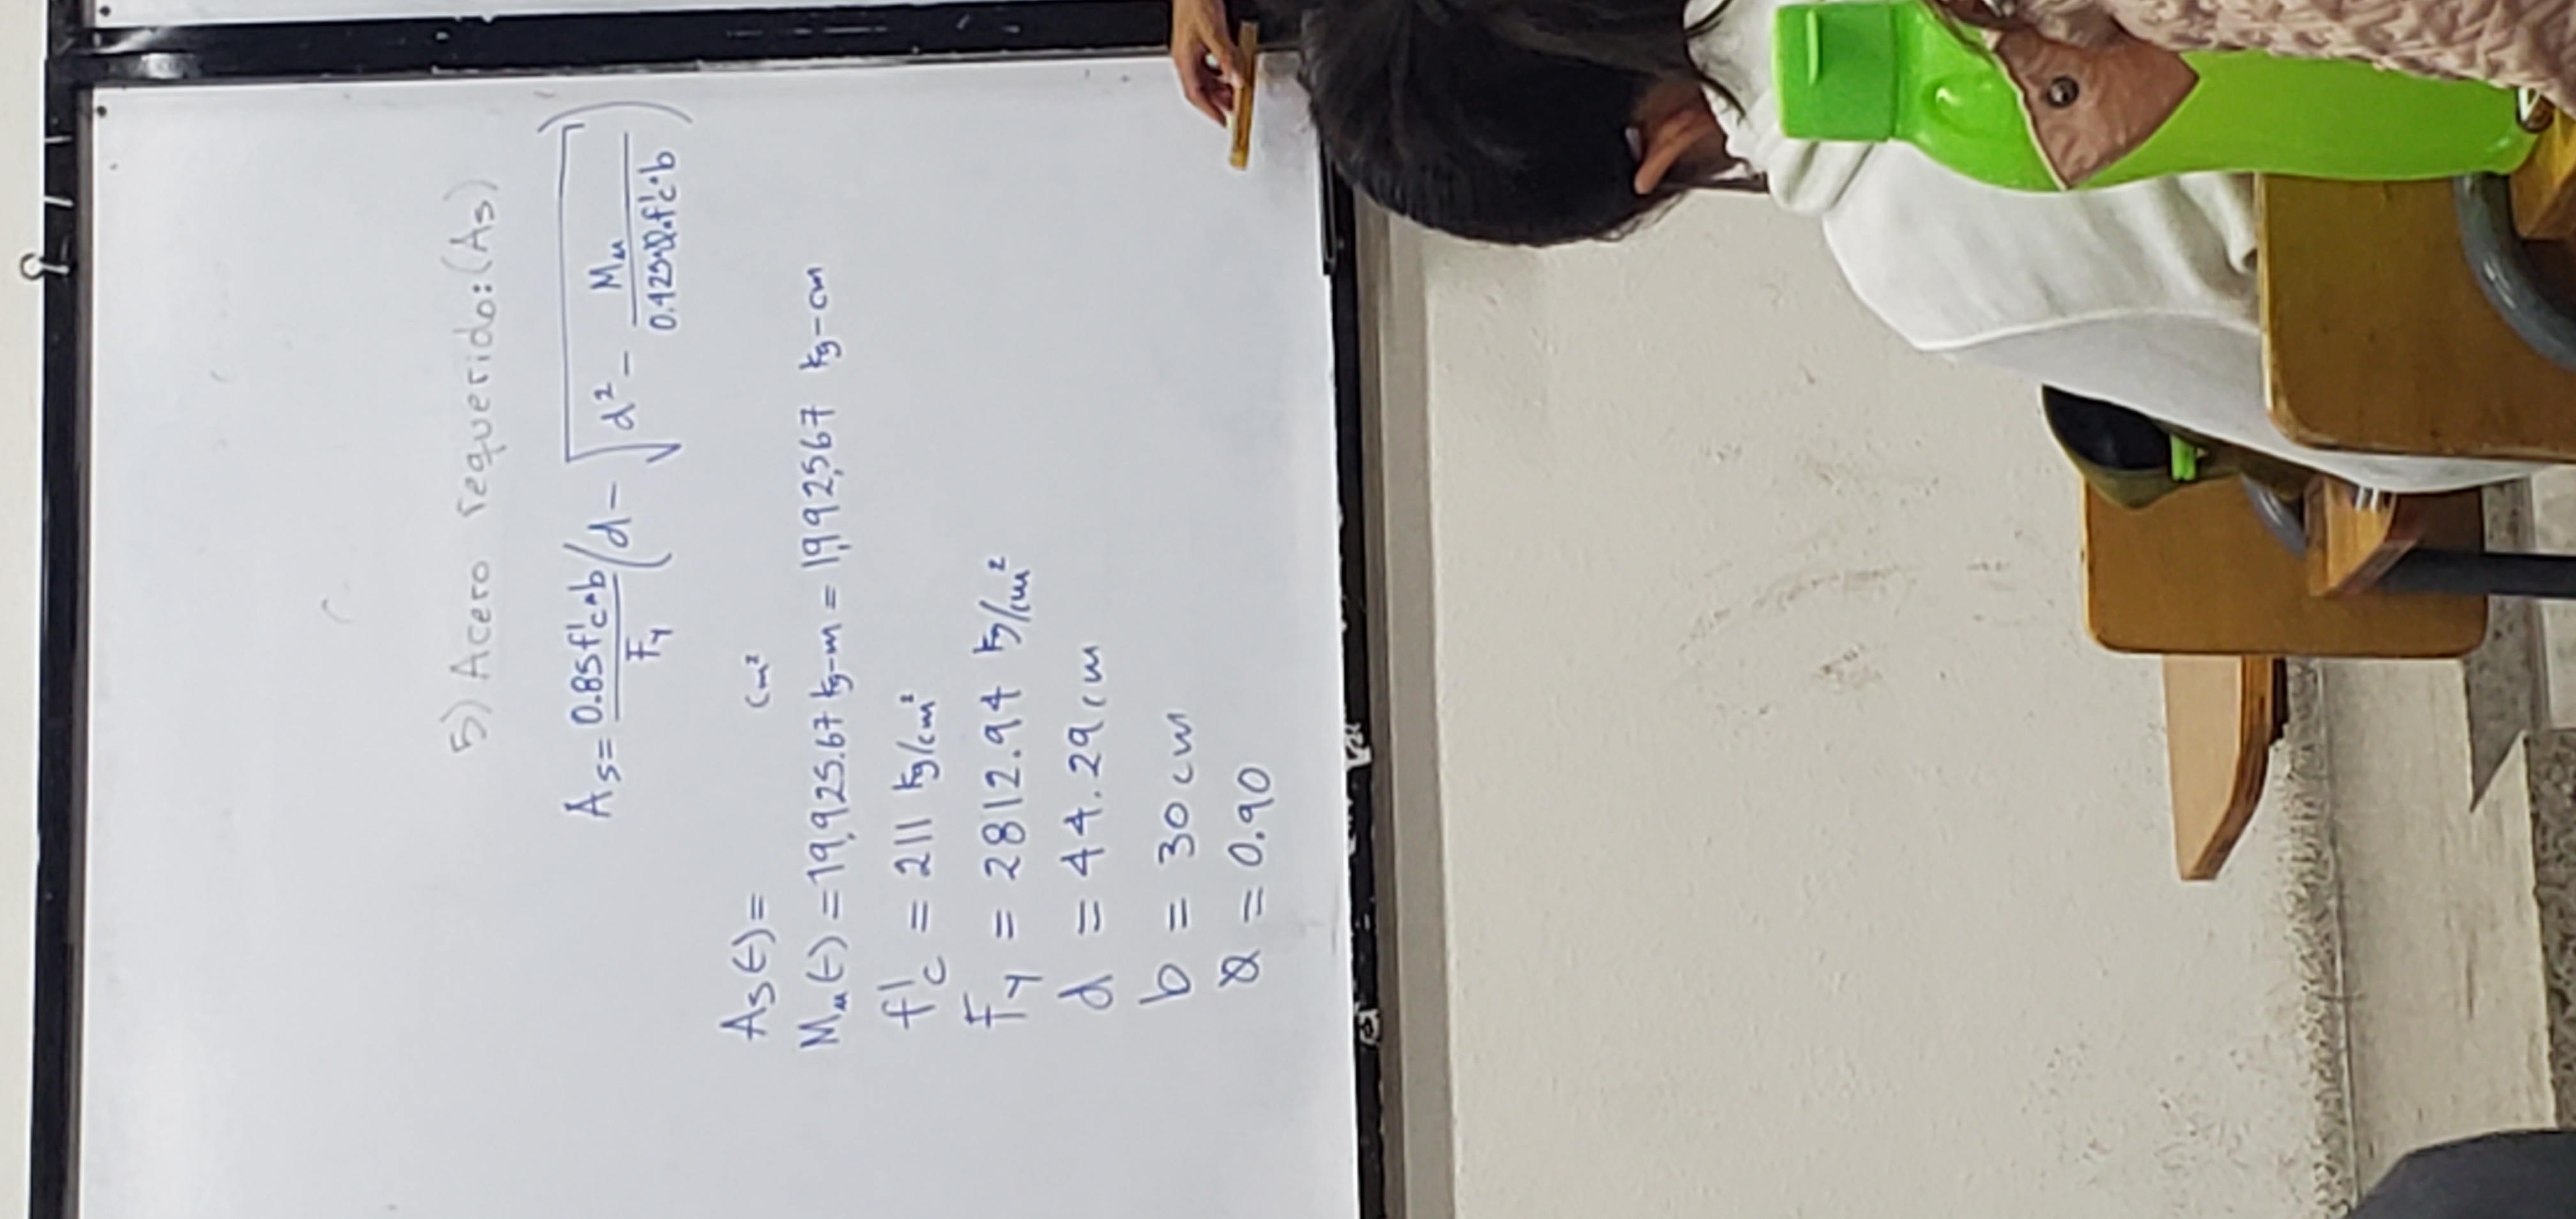 5) Acero requerido: (As)
As = 0.85 f'c * b / Fy (d - √(d² - Mu / 0.425 * Ø * f'c * b))
As (-) = cm²
Mu (-) = 19,925.67 kg-m = 1,992,567 kg-cm
f'c = 211 kg/cm²
Fy = 2812.94 kg/cm²
d = 44.29 cm
b = 30 cm
Ø = 0.90